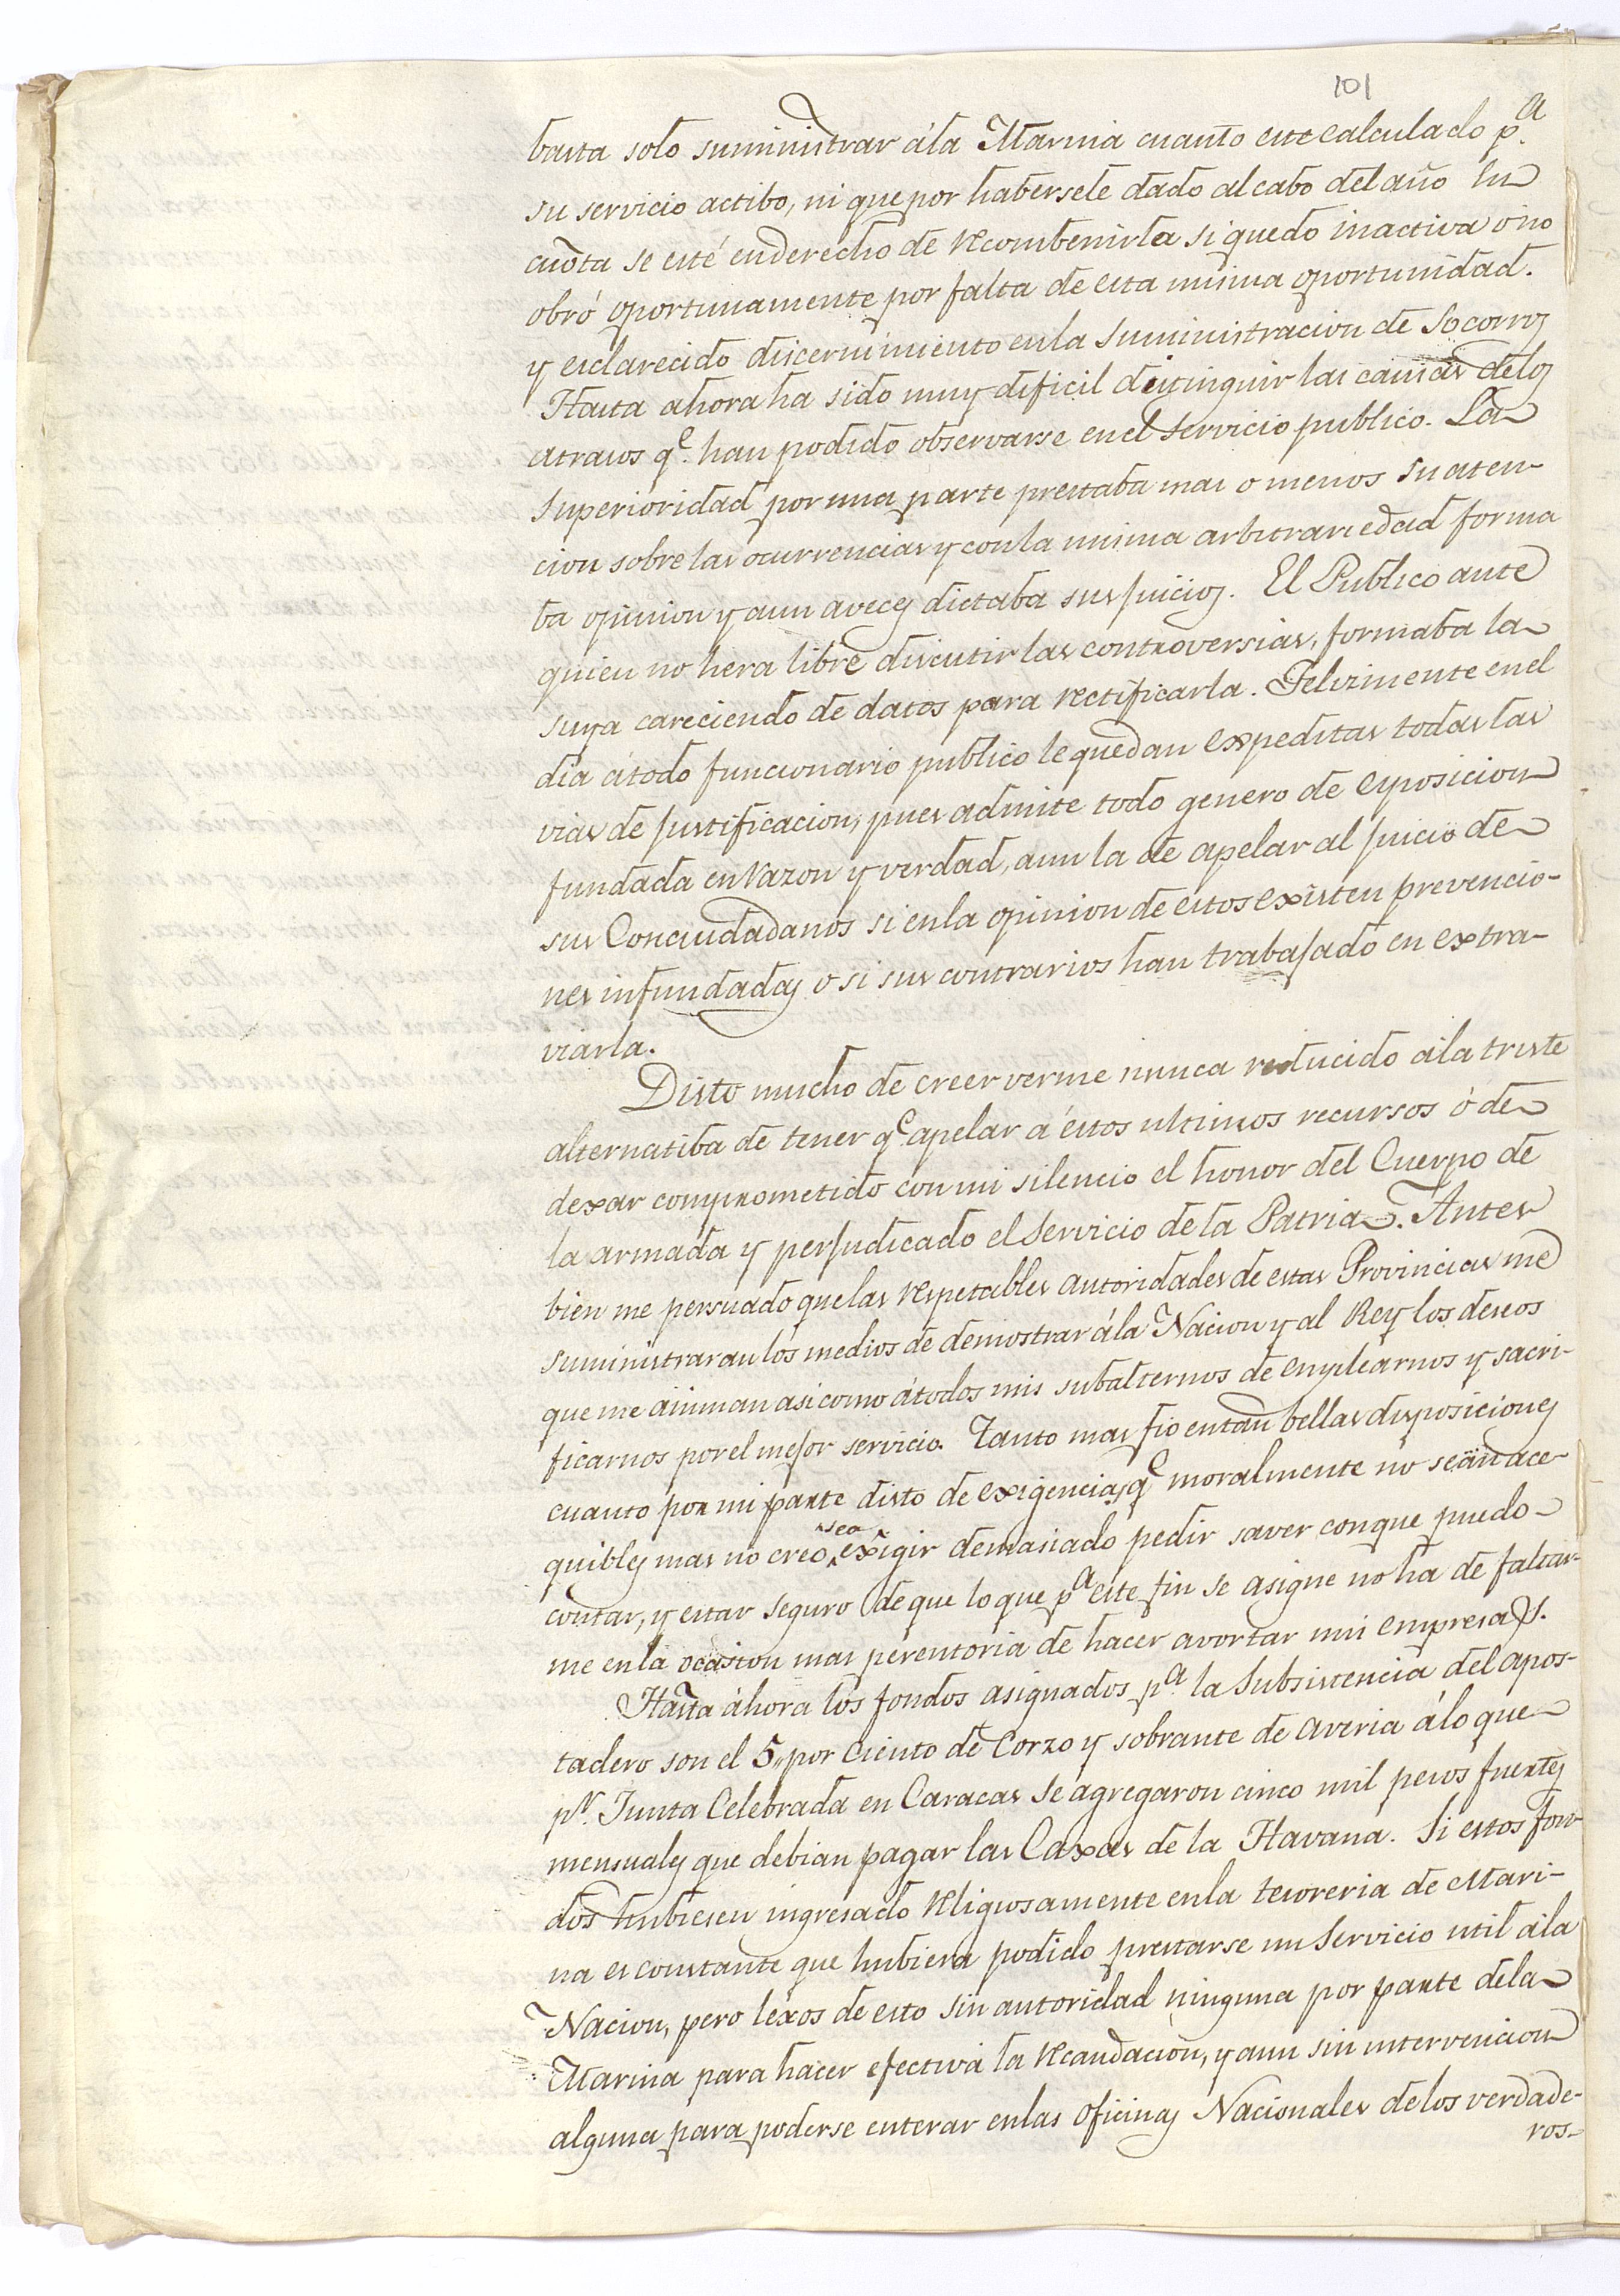 101
basta solo suministrar ála Marina cuanto esté calculado p.ª
su servicio actibo, ni que por habersele dado al cabo del año su
cuota se esté enderecho de recombenirla si quedo inactiva o no
obró oportunamente por falta de esta misma oportunidad.
y esclarecido discernimiento enla suministracion de Socorros
Hasta ahora ha sido muy dificil distinguir las causas delos
atrasos q.e han podido observarse en el servicio publico. La
Superioridad por una parte prestaba mas o menos su aten-
cion sobre las ocurrencias y conla misma arbitrariedad forma
ba opinion y aun aveces dictaba sus juicios. El Publico ante
quien no hera libre discutir las controversias, formaba la
suya careciendo de datos para rectificarla. Felizmente enel
dia átodo funcionario publico le quedan expeditas todas las
vias de justificacion, pues admite todo genero de eposicion
fundada en razon y verdad, aun la de apelar al juicio de
sus Conciudadanos si enla opinion de estos existen prevencio-
nes infundadas o si sus contrarios han trabajado en extra-
viarla.
Disto mucho de creer verme nunca reducido ála triste
alternatiba de tener q.e apelar á estos ultimos recursos ó de
dexar comprometido con mi silencio el honor del Cuerpo de
la armada y perjudicado el servicio de la Patria. Antes
bien me persuado que las respetables autoridades de estas Provincias me
suministraran los medios de demostrar ála Nacion y al Rey los deseos
que me animan asi como átodos mis subalternos de emplearnos y sacri-
ficarnos por el mejor servicio. Tanto mas fio entan bellas disposiciones
cuanto por mi parte disto de exigencias q.e moralmente no sean ace-
sea
quibles mas no creo exigir demasiado pedir saver conque puedo
contar, y estar seguro de que lo que p.ª este fin se asigne no ha de faltar-
me enla ocasion mas perentoria de hacer avortar mis empresas.
Hasta áhora los fondos asignados p.ª la Subsistencia del apos-
tadero son el 5,, por ciento de Corzo y sobrante de averia álo que
p.r Junta Celebrada en Caracas se agregaron cinco mil pesos fuertes
mensuales que debian pagar las Caxas de la Havana. Si estos fon-
dos hubiesen ingresado religiosamente enla tesoreria de Mari-
na es constante que hubiera podido prestarse un Servicio util ála
Nacion, pero lexos de esto sin autoridad ninguna por parte dela
Marina para hacer efectiva la recaudacion, y aun sin intervencion
alguna para poderse enterar enlas oficinas Nacionales delos verdade-
ros-